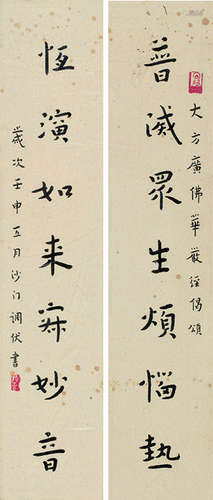 大方廣佛華嚴經偈頌
普滅眾生煩惱熱
恆演如来寂妙音
歲次壬申五月沙门调伏書